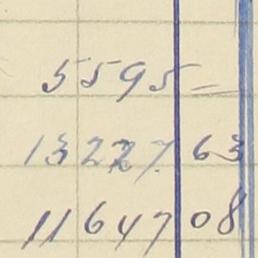 5595 =
13227 63
11647 08